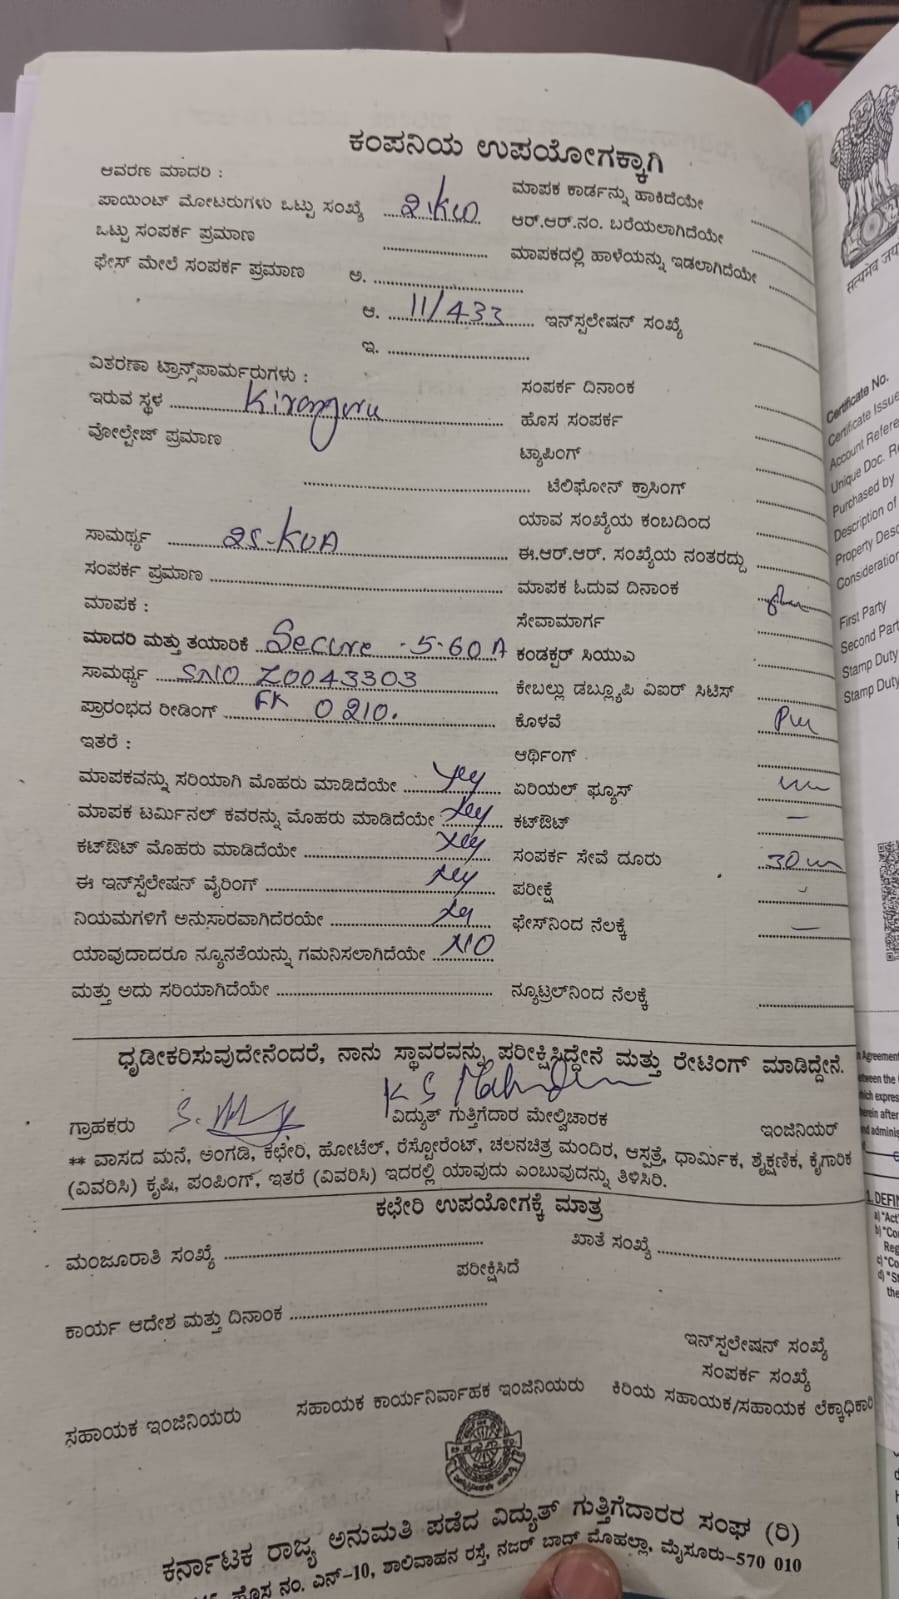 ಕಂಪನಿಯ ಉಪಯೋಗಕ್ಕಾಗಿ
ಆವರಣ ಮಾದರಿ :
ಪಾಯಿಂಟ್ ಮೋಟರುಗಳು ಒಟ್ಟು ಸಂಖ್ಯೆ 2 KW
ಒಟ್ಟು ಸಂಪರ್ಕ ಪ್ರಮಾಣ
ಫೇಸ್ ಮೇಲೆ ಸಂಪರ್ಕ ಪ್ರಮಾಣ ಅ.
ಆ. 11/433 ಇನ್‌ಸ್ಪಲೇಷನ್ ಸಂಖ್ಯೆ
ಇ.
ಮಾಪಕ ಕಾರ್ಡನ್ನು ಹಾಕಿದೆಯೇ
ಆರ್.ಆರ್.ನಂ. ಬರೆಯಲಾಗಿದೆಯೇ
ಮಾಪಕದಲ್ಲಿ ಹಾಳೆಯನ್ನು ಇಡಲಾಗಿದೆಯೇ
ವಿತರಣಾ ಟ್ರಾನ್ಸ್‌ಪಾರ್ಮರುಗಳು :
ಇರುವ ಸ್ಥಳ Kiranguru
ವೋಲ್ಟೇಜ್ ಪ್ರಮಾಣ
ಸಂಪರ್ಕ ದಿನಾಂಕ
ಹೊಸ ಸಂಪರ್ಕ
ಟ್ಯಾಪಿಂಗ್
ಟೆಲಿಫೋನ್ ಕ್ರಾಸಿಂಗ್
ಯಾವ ಸಂಖ್ಯೆಯ ಕಂಬದಿಂದ
ಸಾಮರ್ಥ್ಯ 25-KVA
ಈ.ಆರ್.ಆರ್. ಸಂಖ್ಯೆಯ ನಂತರದ್ದು
ಸಂಪರ್ಕ ಪ್ರಮಾಣ
ಮಾಪಕ ಓದುವ ದಿನಾಂಕ
ಮಾಪಕ :
ಸೇವಾಮಾರ್ಗ
ಮಾದರಿ ಮತ್ತು ತಯಾರಿಕೆ Secure -5-60A
ಕಂಡಕ್ಟರ್ ಸಿಯುಎ
ಸಾಮರ್ಥ್ಯ SNO Z0043303
ಕೇಬಲ್ಲು ಡಬ್ಲ್ಯೂಪಿ ವಿಐರ್ ಸಿಟಿಸ್
ಪ್ರಾರಂಭದ ರೀಡಿಂಗ್ FR 0210.
ಕೊಳವೆ
ಇತರೆ :
ಆರ್ಥಿಂಗ್
ಮಾಪಕವನ್ನು ಸರಿಯಾಗಿ ಮೊಹರು ಮಾಡಿದೆಯೇ yes
ಏರಿಯಲ್ ಫ್ಯೂಸ್
ಮಾಪಕ ಟರ್ಮಿನಲ್ ಕವರನ್ನು ಮೊಹರು ಮಾಡಿದೆಯೇ yes
ಕಟ್‌ಔಟ್ –
ಕಟ್‌ಔಟ್ ಮೊಹರು ಮಾಡಿದೆಯೇ yes
ಸಂಪರ್ಕ ಸೇವೆ ದೂರು 30 m
ಈ ಇನ್‌ಸ್ಪೆಲೇಷನ್ ವೈರಿಂಗ್ yes
ಪರೀಕ್ಷೆ
ನಿಯಮಗಳಿಗೆ ಅನುಸಾರವಾಗಿದೆರಯೇ yes
ಫೇಸ್‌ನಿಂದ ನೆಲಕ್ಕೆ –
ಯಾವುದಾದರೂ ನ್ಯೂನತೆಯನ್ನು ಗಮನಿಸಲಾಗಿದೆಯೇ NO
ಮತ್ತು ಅದು ಸರಿಯಾಗಿದೆಯೇ
ನ್ಯೂಟ್ರಲ್‌ನಿಂದ ನೆಲಕ್ಕೆ
ಧೃಡೀಕರಿಸುವುದೇನೆಂದರೆ, ನಾನು ಸ್ಥಾವರವನ್ನು ಪರೀಕ್ಷಿಸಿದ್ಧೇನೆ ಮತ್ತು ರೇಟಿಂಗ್ ಮಾಡಿದ್ದೇನೆ.
ಗ್ರಾಹಕರು ವಿದ್ಯುತ್ ಗುತ್ತಿಗೆದಾರ ಮೇಲ್ವಿಚಾರಕ ಇಂಜಿನಿಯರ್
** ವಾಸದ ಮನೆ, ಅಂಗಡಿ, ಕಛೇರಿ, ಹೋಟೆಲ್, ರೆಸ್ಟೋರೆಂಟ್, ಚಲನಚಿತ್ರ ಮಂದಿರ, ಆಸ್ಪತ್ರೆ, ಧಾರ್ಮಿಕ, ಶೈಕ್ಷಣಿಕ, ಕೈಗಾರಿಕೆ
(ವಿವರಿಸಿ) ಕೃಷಿ, ಪಂಪಿಂಗ್, ಇತರೆ (ವಿವರಿಸಿ) ಇದರಲ್ಲಿ ಯಾವುದು ಎಂಬುವುದನ್ನು ತಿಳಿಸಿರಿ.
ಕಛೇರಿ ಉಪಯೋಗಕ್ಕೆ ಮಾತ್ರ
ಮಂಜೂರಾತಿ ಸಂಖ್ಯೆ ಖಾತೆ ಸಂಖ್ಯೆ
ಪರೀಕ್ಷಿಸಿದೆ
ಕಾರ್ಯ ಆದೇಶ ಮತ್ತು ದಿನಾಂಕ
ಇನ್‌ಸ್ಪಲೇಷನ್ ಸಂಖ್ಯೆ
ಸಂಪರ್ಕ ಸಂಖ್ಯೆ
ಸಹಾಯಕ ಇಂಜಿನಿಯರು ಸಹಾಯಕ ಕಾರ್ಯನಿರ್ವಾಹಕ ಇಂಜಿನಿಯರು ಕಿರಿಯ ಸಹಾಯಕ/ಸಹಾಯಕ ಲೆಕ್ಕಾಧಿಕಾರಿ
ಕರ್ನಾಟಕ ರಾಜ್ಯ ಅನುಮತಿ ಪಡೆದ ವಿದ್ಯುತ್ ಗುತ್ತಿಗೆದಾರರ ಸಂಘ (ರಿ)
ಹೊಸ ನಂ. ಎನ್-10, ಶಾಲಿವಾಹನ ರಸ್ತೆ, ನಜರ್ ಬಾದ್ ಮೊಹಲ್ಲಾ, ಮೈಸೂರು-570 010
सत्यमेव जय
Certificate No.
Certificate Issue
Account Refere
Unique Doc. Re
Purchased by
Description of
Property Desc
Consideration
First Party
Second Part
Stamp Duty
Stamp Duty